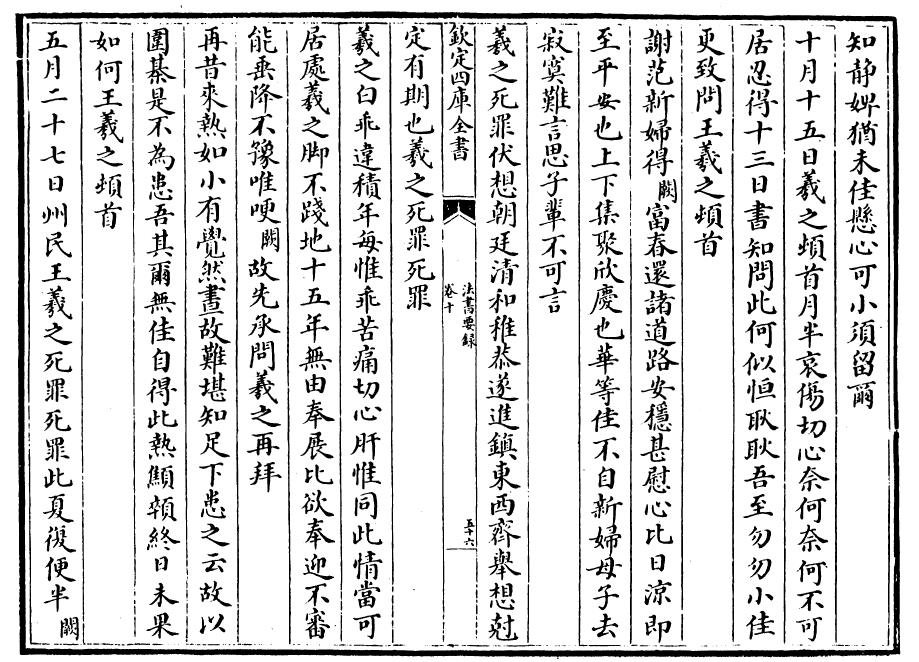 知静婢猶未佳懸心可小須留爾
十月十五日羲之頓首月半哀傷切心奈何奈何不可
居忍得十三日書知問此何似恒耿耿吾至勿勿小佳
更致問王羲之頓首
謝范新婦得闕富春還諸道路安穩甚慰心比日涼即
至平安也上下集聚欣慶也華等佳不自新婦母子去
寂寞難言思子輩不可言
羲之死罪伏想朝廷清和稚恭遂進鎮東西齊舉想尅
欽定四庫全書
法書要録
卷十
五十六
定有期也羲之死罪死罪
羲之白乖違積年每惟乖苦痛切心肝惟同此情當可
居處羲之脚不踐地十五年無由奉展比欲奉迎不審
能垂降不豫唯哽闕故先承問羲之再拜
再昔來熱如小有覺然晝故難堪知足下患之云故以
圍棊是不為患吾其爾無佳自得此熱顯顇終日未果
如何王羲之頓首
五月二十七日州民王羲之死罪死罪此夏復便半闕